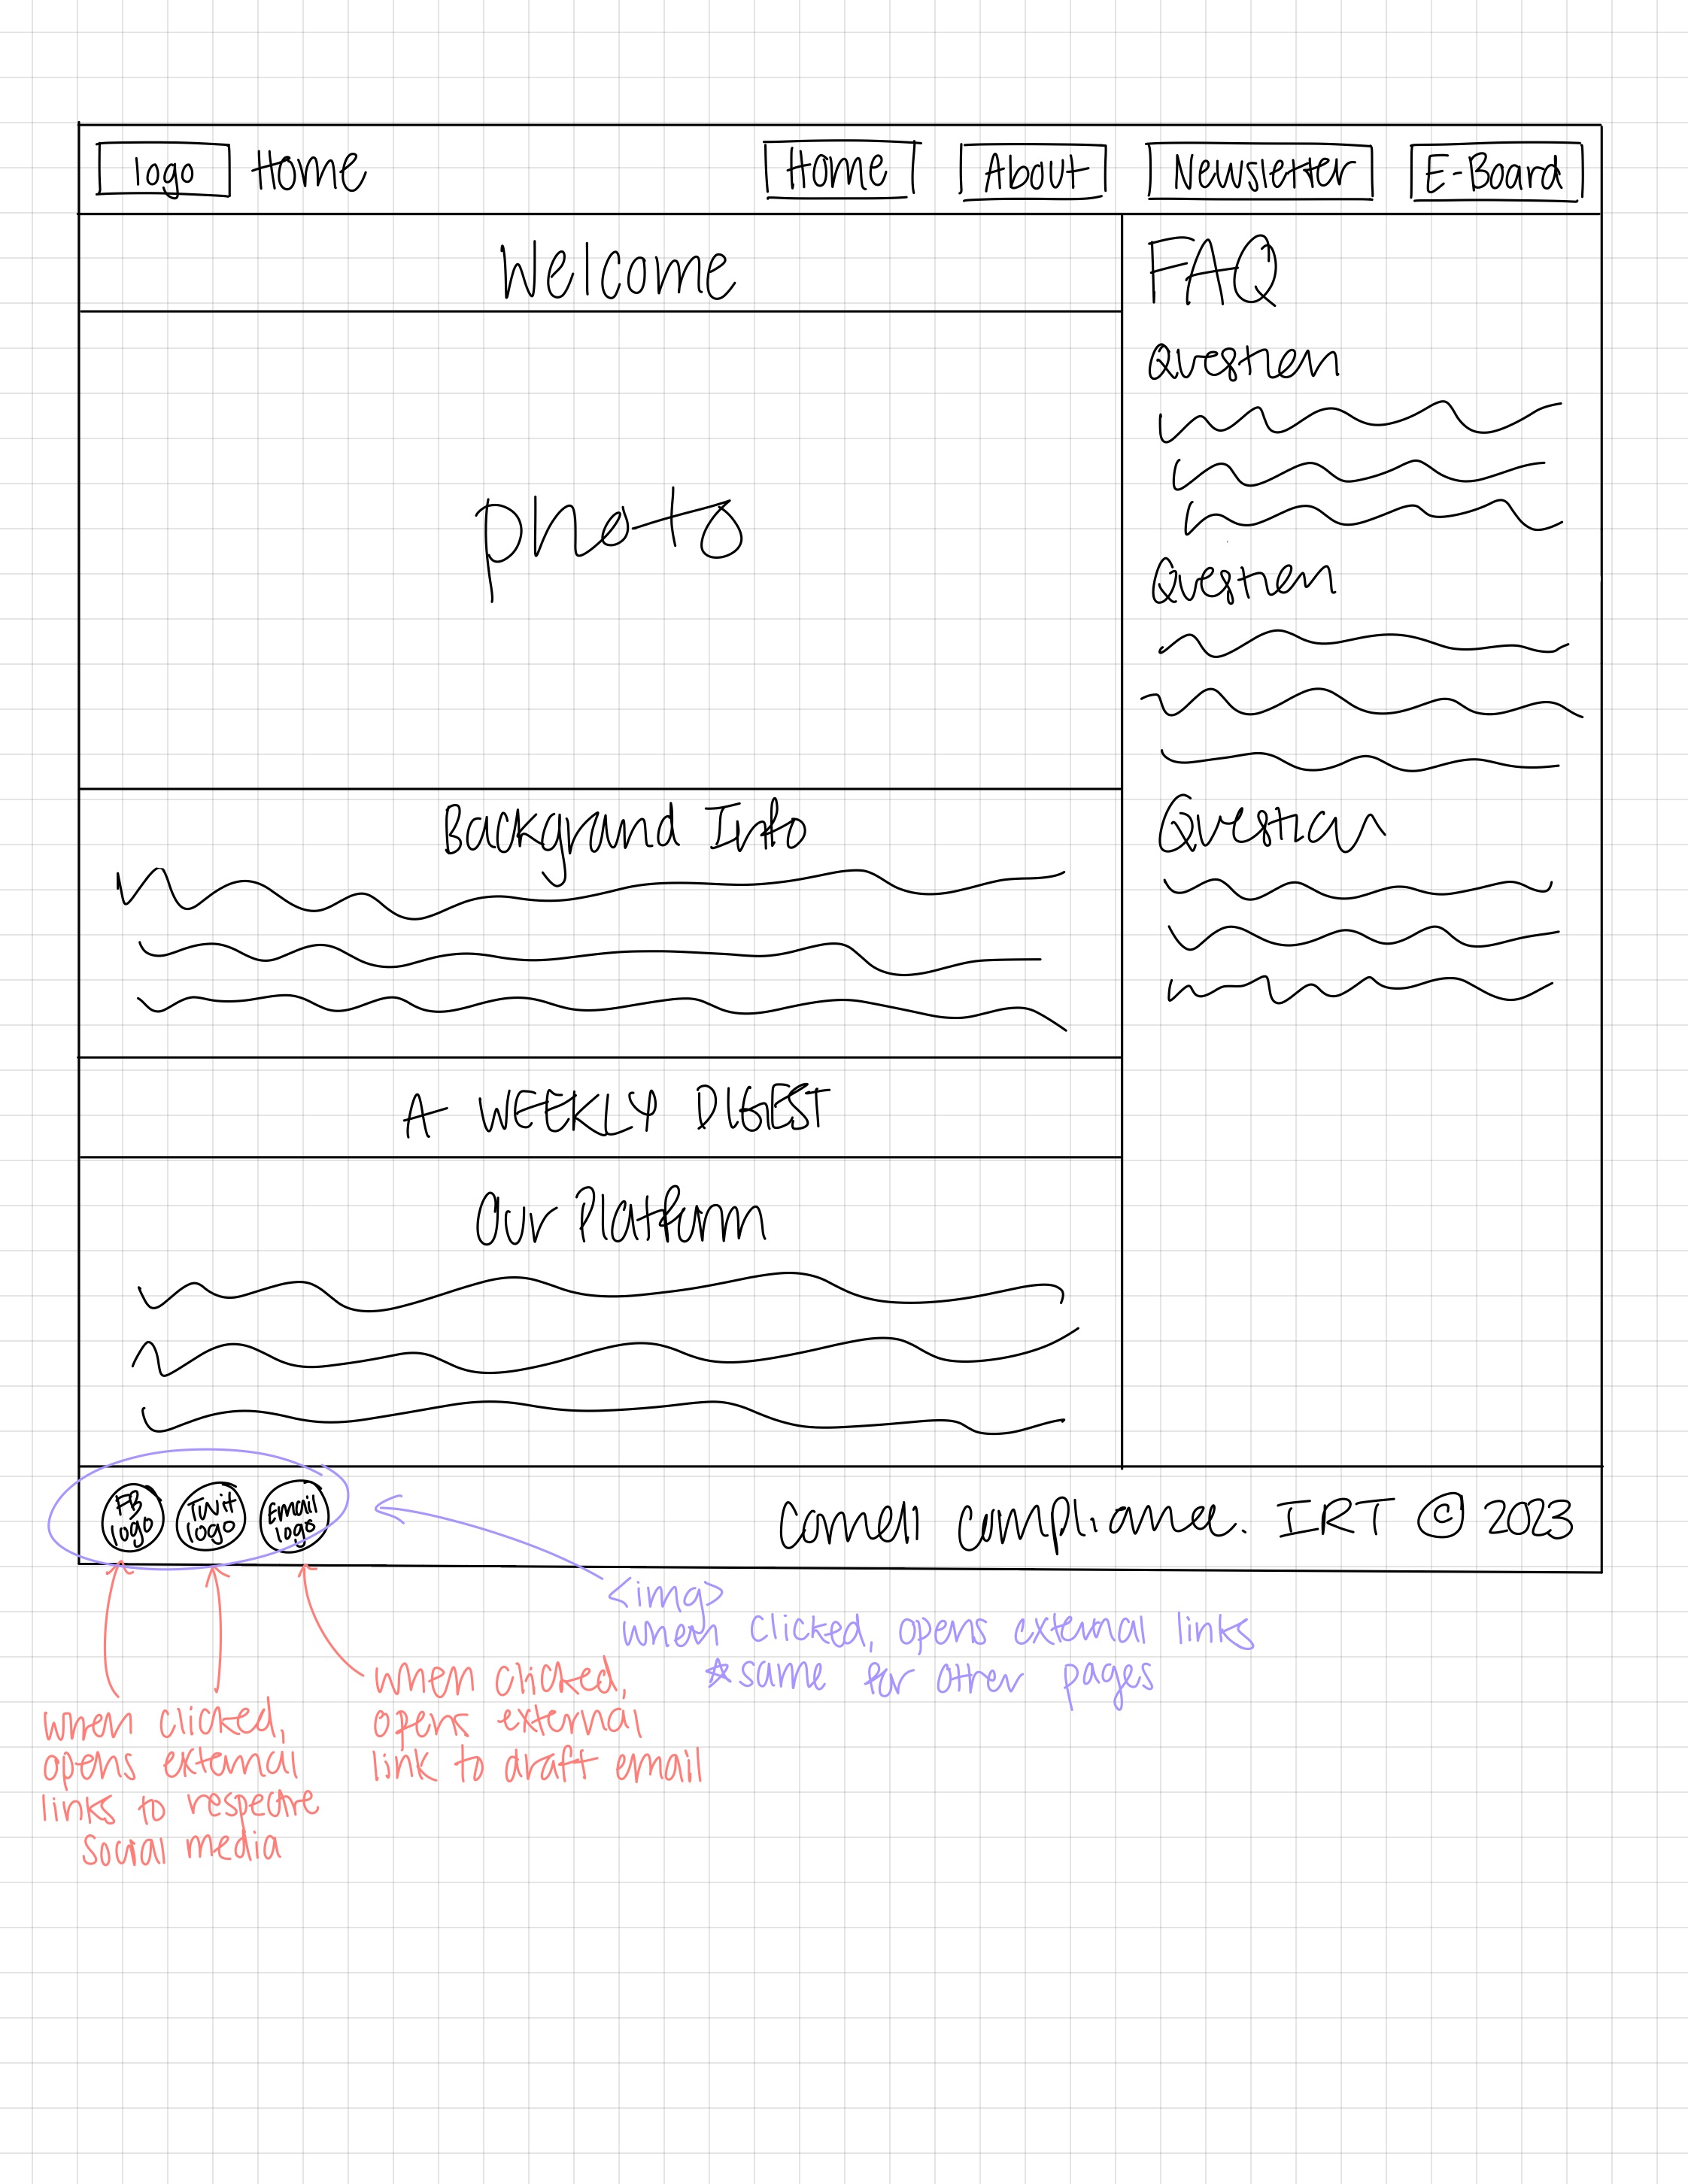 logo Home Home About Newsletter E-Board
Welcome
photo
Background Info
A WEEKLY DIGEST
Our Platform
FAQ
Question
Question
Question
FB
logo
Twit
logo
Email
logo
Cornell Compliance. IRT © 2023
<img>
when clicked, opens external links
*same for other pages
when clicked,
opens external
links to respective
social media
when clicked,
opens external
link to draft email